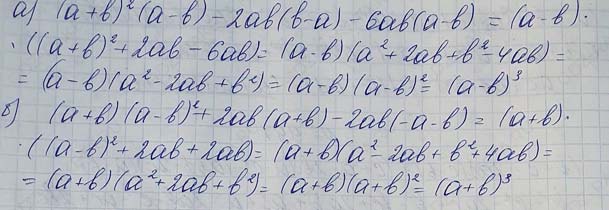 а) (a+b)²(a-b) - 2ab(b-a) - 6ab(a-b) = (a-b)·
·((a+b)²+2ab-6ab) = (a-b)(a²+2ab+b²-4ab) =
= (a-b)(a²-2ab+b²) = (a-b)(a-b)² = (a-b)³
б) (a+b)(a-b)²+2ab(a+b)-2ab(-a-b) = (a+b)·
·((a-b)²+2ab+2ab) = (a+b)(a²-2ab+b²+4ab) =
= (a+b)(a²+2ab+b²) = (a+b)(a+b)² = (a+b)³